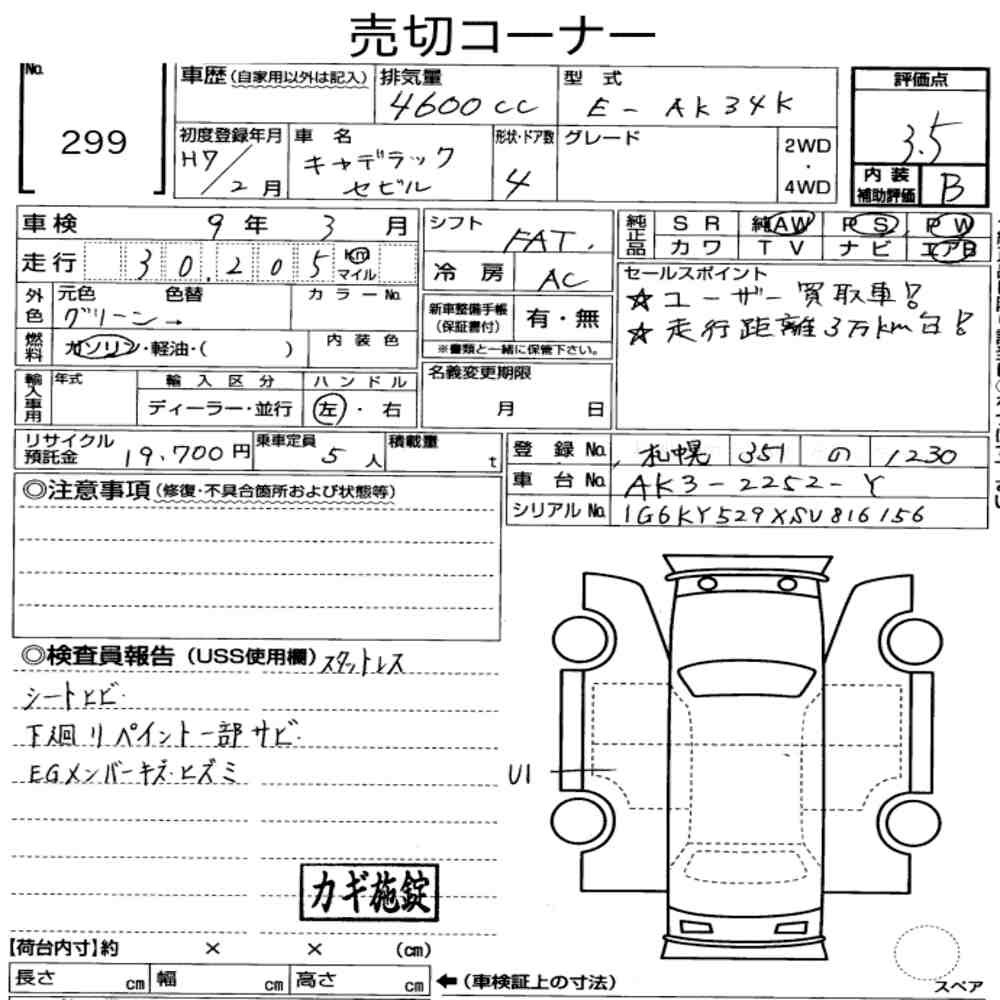 売切コーナー
No.
299
車歴(自家用以外は記入)
排気量
4600cc
型 式
E-AK34K
評価点
3.5
内装補助評価
B
初度登録年月
H7/2月
車 名
キャデラック
セビル
形状・ドア数
4
グレード
2WD
・
4WD
車検 9年 3月
走行 30,205 Km マイル
シフト
FAT.
冷房
AC
純正品
SR 純AW PS PW
カワ TV ナビ エアB
外色
元色 色替
グリーン→
カラーNo.
新車整備手帳
(保証書付)
有・無
※書類と一緒に保管下さい。
セールスポイント
☆ユーザー買取車!
☆走行距離3万km台!
燃料
ガソリン・軽油・( )
内装色
輸入車用
年式
輸入区分
ディーラー・並行
ハンドル
左・右
名義変更期限
月 日
リサイクル
預託金
19,700円
乗車定員
5人
積載量
t
登録No. 札幌 351 の 1230
車台No. AK3-2252-Y
シリアルNo. 1G6KY529XSU816156
◎注意事項(修復・不具合箇所および状態等)
◎検査員報告(USS使用欄)スタットレス
シートヒビ.
下廻リペイント一部サビ.
EGメンバーキズ・ヒズミ
U1
カギ施錠
【荷台内寸】約 × × (cm)
長さ cm 幅 cm 高さ cm
←(車検証上の寸法)
スペア